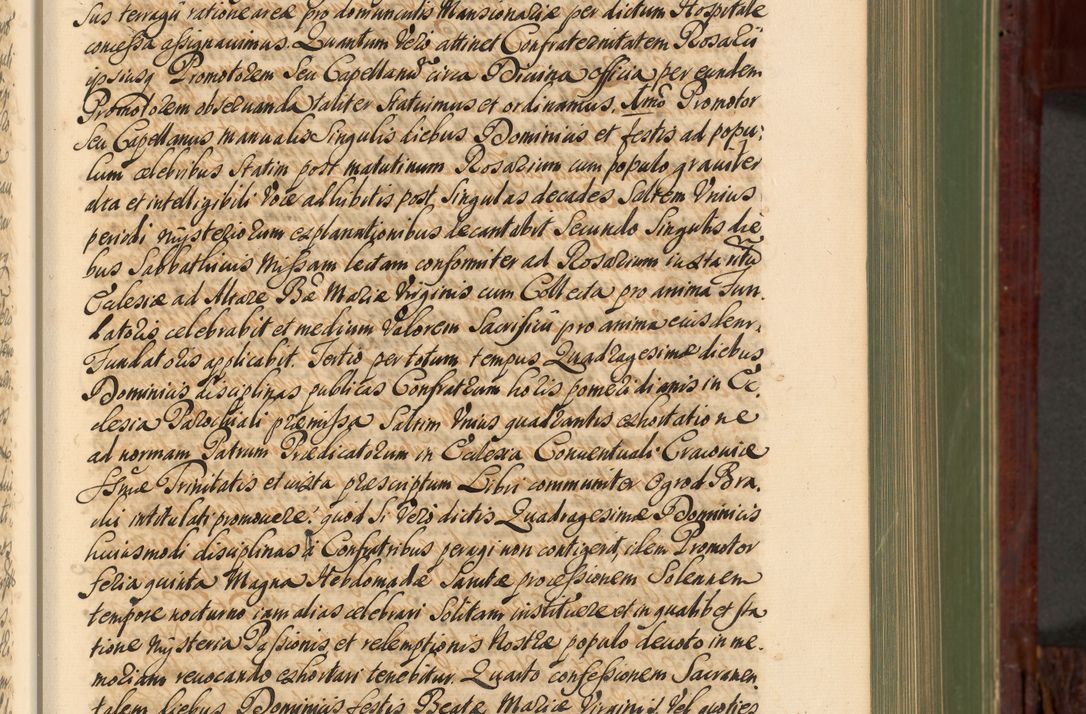 sus terragij ratione areæ pro domunculis Mansionariæ per dictum Hospitale
concessa assignauimus. Quantum Vero attinet Confraternitatem Rosarii
ipsiusq Promotorem Seu Capellanũ circa Diuina officia per eundem
Promotorem obseruanda taliter Statuimus et ordinamus. Imõ Promotor
seu Capellanus manualis Singulis diebus Dominicis et festis ad popu,
lum celebribus Statim post matutinum Rosarium cum populo grauiter
alta et intelligibili Voce adhibitis post Singulas decades Saltem Vnius
periodi mysteriorum explanationibus decantabit Secundo Singulis die
bus Sabbathinis Missam lectam conformiter ad Rosarium iuxta ritũ
Ecclesiæ ad Altare Bæ Mariæ Virginis cum Collecta pro anima Fun,
datoris celebrabit et medium Valorem Sacrificii pro anima eiusdem
Fundatoris applicabit. Tertio per totum tempus Quadragesimæ diebus
Dominicis disciplinas publicas Confratrum horis pomeridianis in Ec,
clesia Parochiali præmissa Saltim Vnius quadrantis exhortatione
ad normam Patrum Prædicatorum in Ecclesia Conuentuali Cracouiæ
SSmæ Trinitatis et iuxta præscriptum Libri communiter Ogrod Ro,
 intitulati promouere: quod Si Vero dictis Quadragesimæ Dominicis
huiusmodi disciplinas à Confratribus peragi non contigerit, idem Promotor
feria quinta Magna Hebdomadæ Sanctæ processionem Solennem
tempore nocturno iam alias celebrari Solitam instituere et in qualibet sta
tione mysteria Passionis et redemptionis Nostræ populo deuoto in me,
moriam reuocando exhortari tenebitur. Quarto confessionem Sacramen
talem diebus Dominicis festis Beatæ Mariæ Virginis, Vel quoties